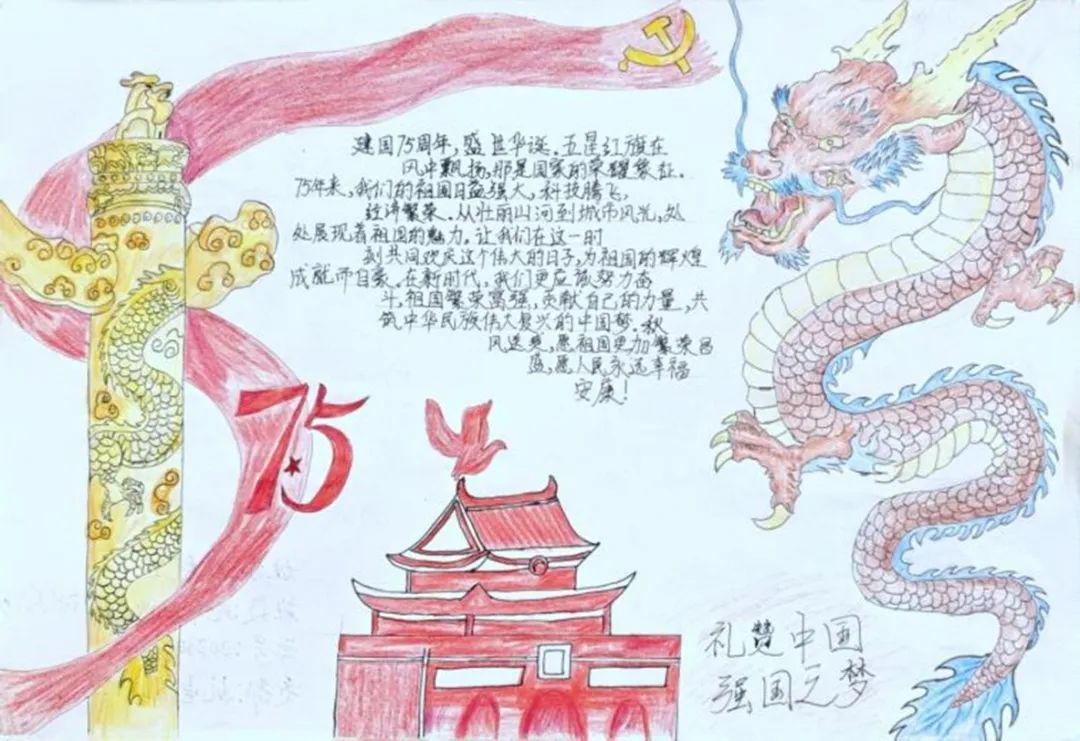 建国75周年,盛世华诞。五星红旗在
风中飘扬,那是国家的荣耀象征。
75年来,我们的祖国日益强大,科技腾飞,
经济繁荣。从壮丽山河到城市风光,处
处展现着祖国的魅力。让我们在这一时
刻共同欢庆这个伟大的日子,为祖国的辉煌
成就而自豪。在新时代,我们更应该努力奋
斗,祖国繁荣富强,贡献自己的力量,共
筑中华民族伟大复兴的中国梦。秋
风送爽,愿祖国更加繁荣昌
盛,愿人民永远幸福
安康!
75
礼赞中国
强国之梦